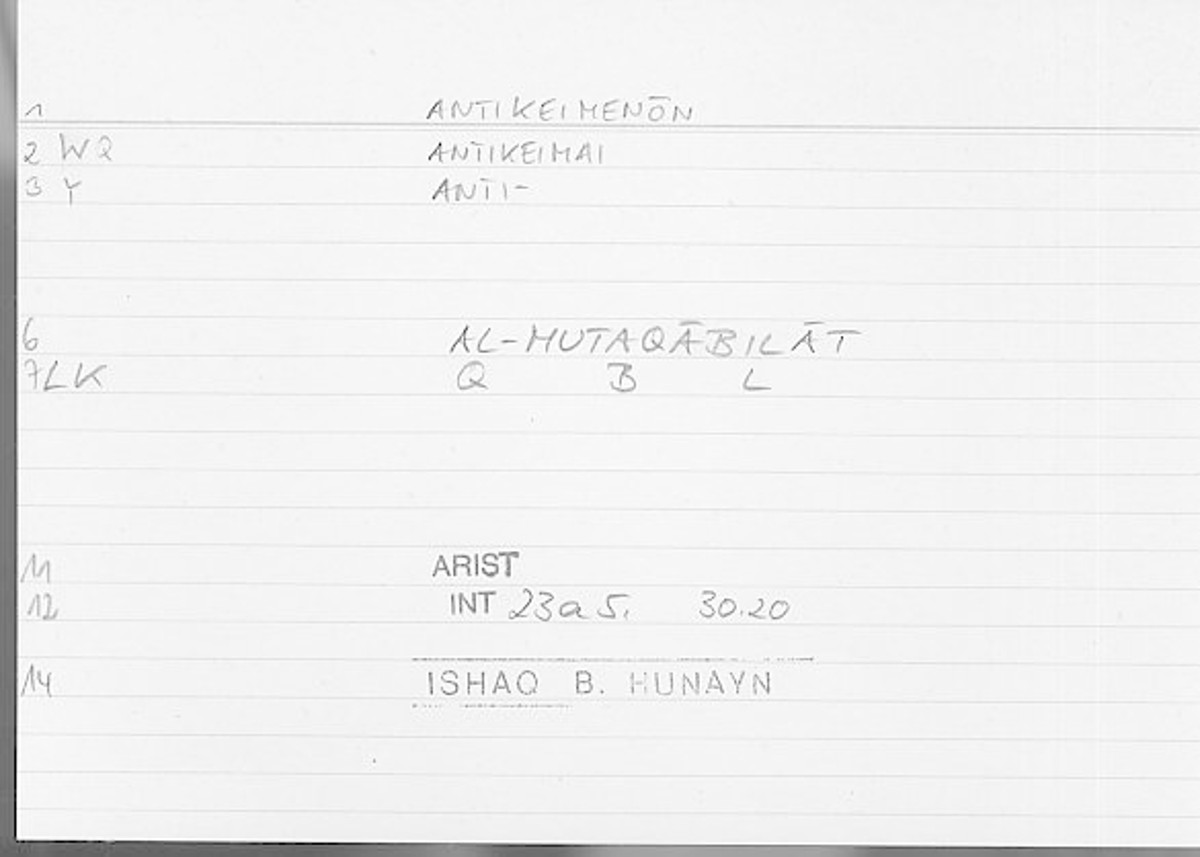 1 ANTIKEIMENŌN
2 WQ ANTIKEIMAI
3 Y ANTI-
6 AL-MUTAQĀBILĀT
7LK Q B L
11 ARIST
12 INT 23a5. 30.20
14 ISHAQ B. HUNAYN